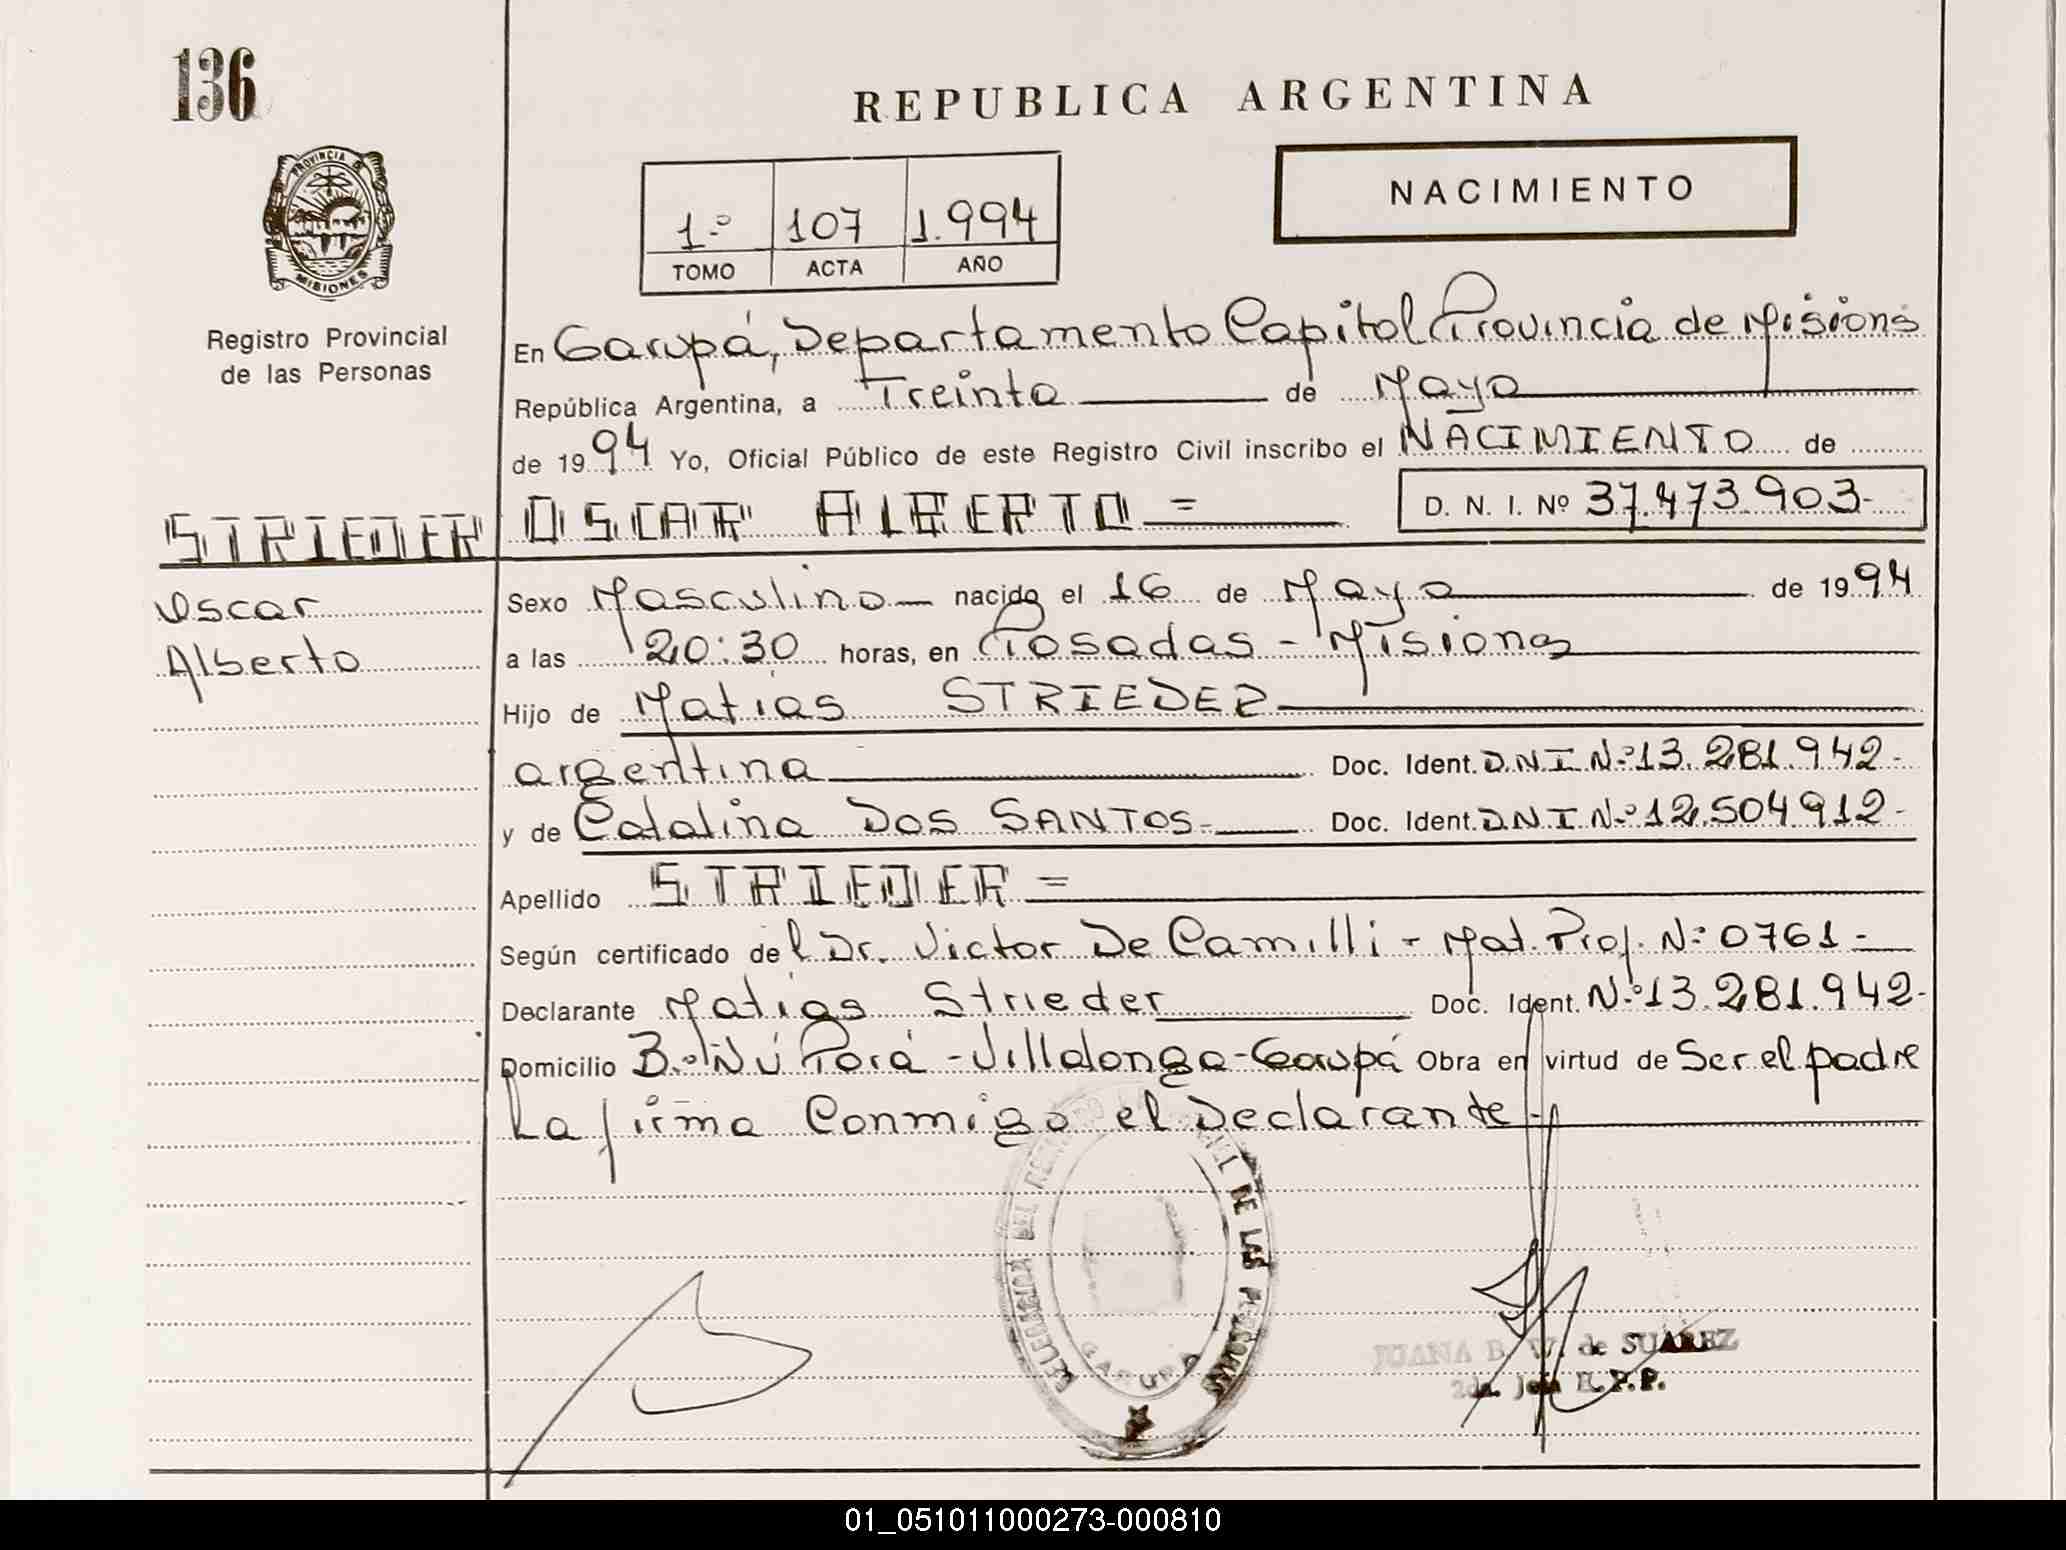 136
REPUBLICA ARGENTINA
PROVINCIA DE
MISIONES
NACIMIENTO
1.º 107 1.994
TOMO ACTA AÑO
Registro Provincial
de las Personas
En Garupá, Departamento Capital Provincia de Misiones
República Argentina, a Treinta de Mayo
de 1994 Yo, Oficial Público de este Registro Civil inscribo el NACIMIENTO de
STRIEDER OSCAR ALBERTO = D. N. I. Nº 37.473.903-
Oscar
Alberto
Sexo Masculino nacido el 16 de Mayo de 1994
a las 20:30 horas, en Posadas - Misiones
Hijo de Matías STRIEDER
argentina Doc. Ident. D.N.I. Nº 13.281.942-
y de Catalina DOS SANTOS- Doc. Ident. D.N.I. Nº 12.504912-
Apellido STRIEDER =
Según certificado del Dr. Victor De Camilli - Mat. Prof. Nº 0761-
Declarante Matías Strieder Doc. Ident. Nº 13.281.942-
Domicilio B.º Ñú Porá - Villalonga - Garupá Obra en virtud de Ser el padre
La firma Conmigo el Declarante-
DEL DE LAS PERSONAS
GARUPA
JUANA B. W. de SUAREZ
2da. Jefa R.P.P.
01_051011000273-000810